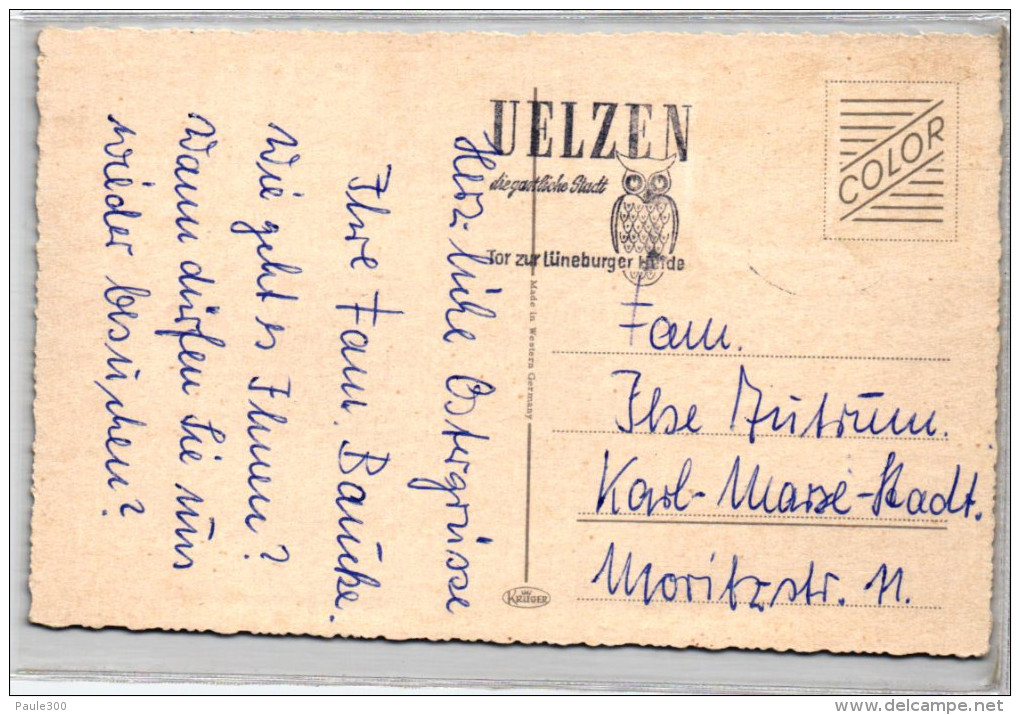 UELZEN
die gastliche Stadt
Tor zur Lüneburger Heide
COLOR
Herzliche Ostergrüsse
Ihre Fam. Baucke.
Wie geht es Ihnen?
Wann dürfen Sie uns
wieder besuchen?
Made in Western Germany
KRÜGER
Fam.
Ilse
Karl-Marx-Stadt.
Moritzstr. 11.
Paule300
delcampe.net